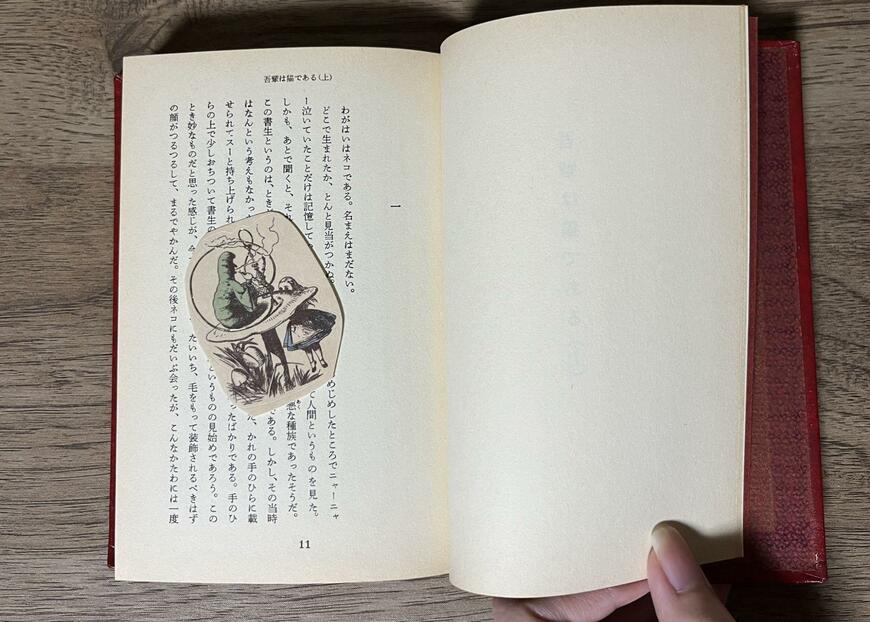 吾輩は猫である(上)
一
わがはいはネコである。名まえはまだない。
どこで生まれたか、とんと見当がつかぬ。めじめしたところでニャーニャ
ー泣いていたことだけは記憶して て人間というものを見た。
しかも、あとで聞くと、それ 悪な種族であったそうだ。
この書生というのは、とき である。しかし、その当時
はなんという考えもなかった た、かれの手のひらに載
せられてスーと持ち上げられ ったばかりである。手のひ
らの上で少しおちついて書生の というものの見始めであろう。この
とき妙なものだと思った感じが、今 たいいち、毛をもって装飾されるべきはず
の顔がつるつるして、まるでやかんだ。その後ネコにもだいぶ会ったが、こんなかたわには一度
11